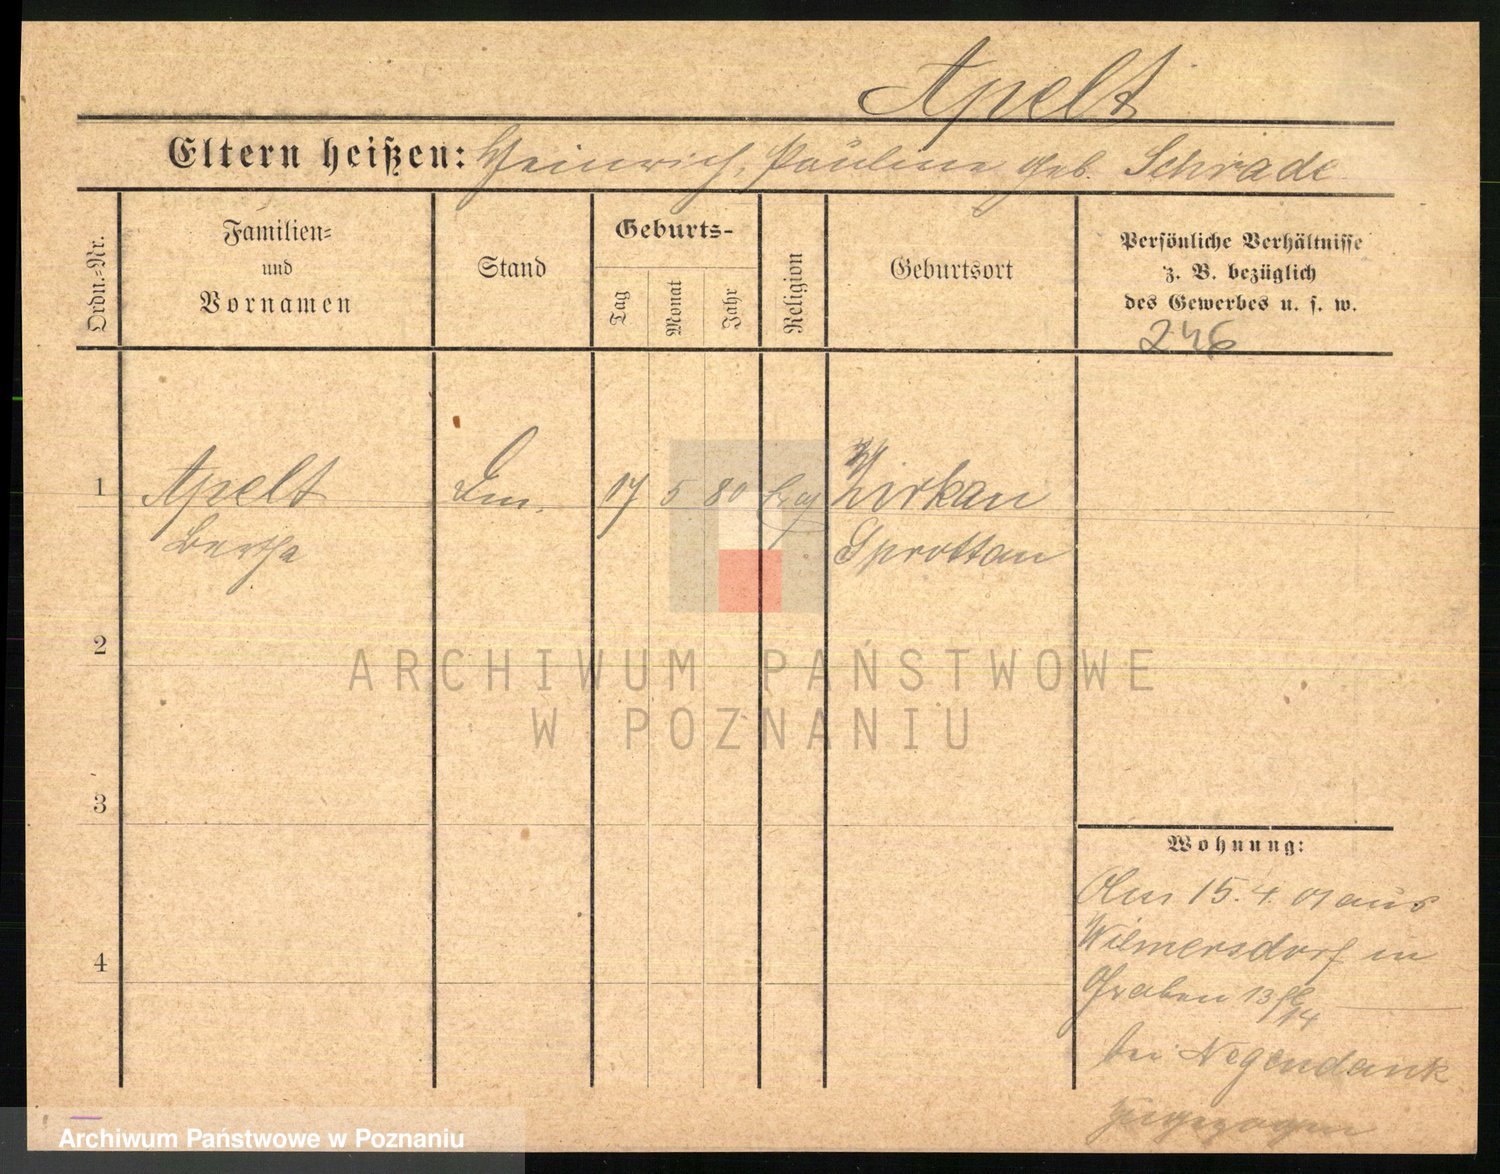 Apelt
Eltern heißen: Heinrich, Pauline geb. Schrade
Ordn.=Nr.
Familien=
und
Vornamen
Stand
Geburts-
Tag
Monat
Jahr
Religion
Geburtsort
Persönliche Verhältnisse
z. B. bezüglich
des Gewerbes u. s. w.
246
1
Apelt
Bertha
17
5
80
Evg
Zirkau
Sprottau
2
ARCHIWUM PAŃSTWOWE
W POZNANIU
3
Wohnung:
Am 15.4.01 aus
Wilmersdorf in
4
Graben 13
bei Negendank
zugezogen
Archiwum Państwowe w Poznaniu